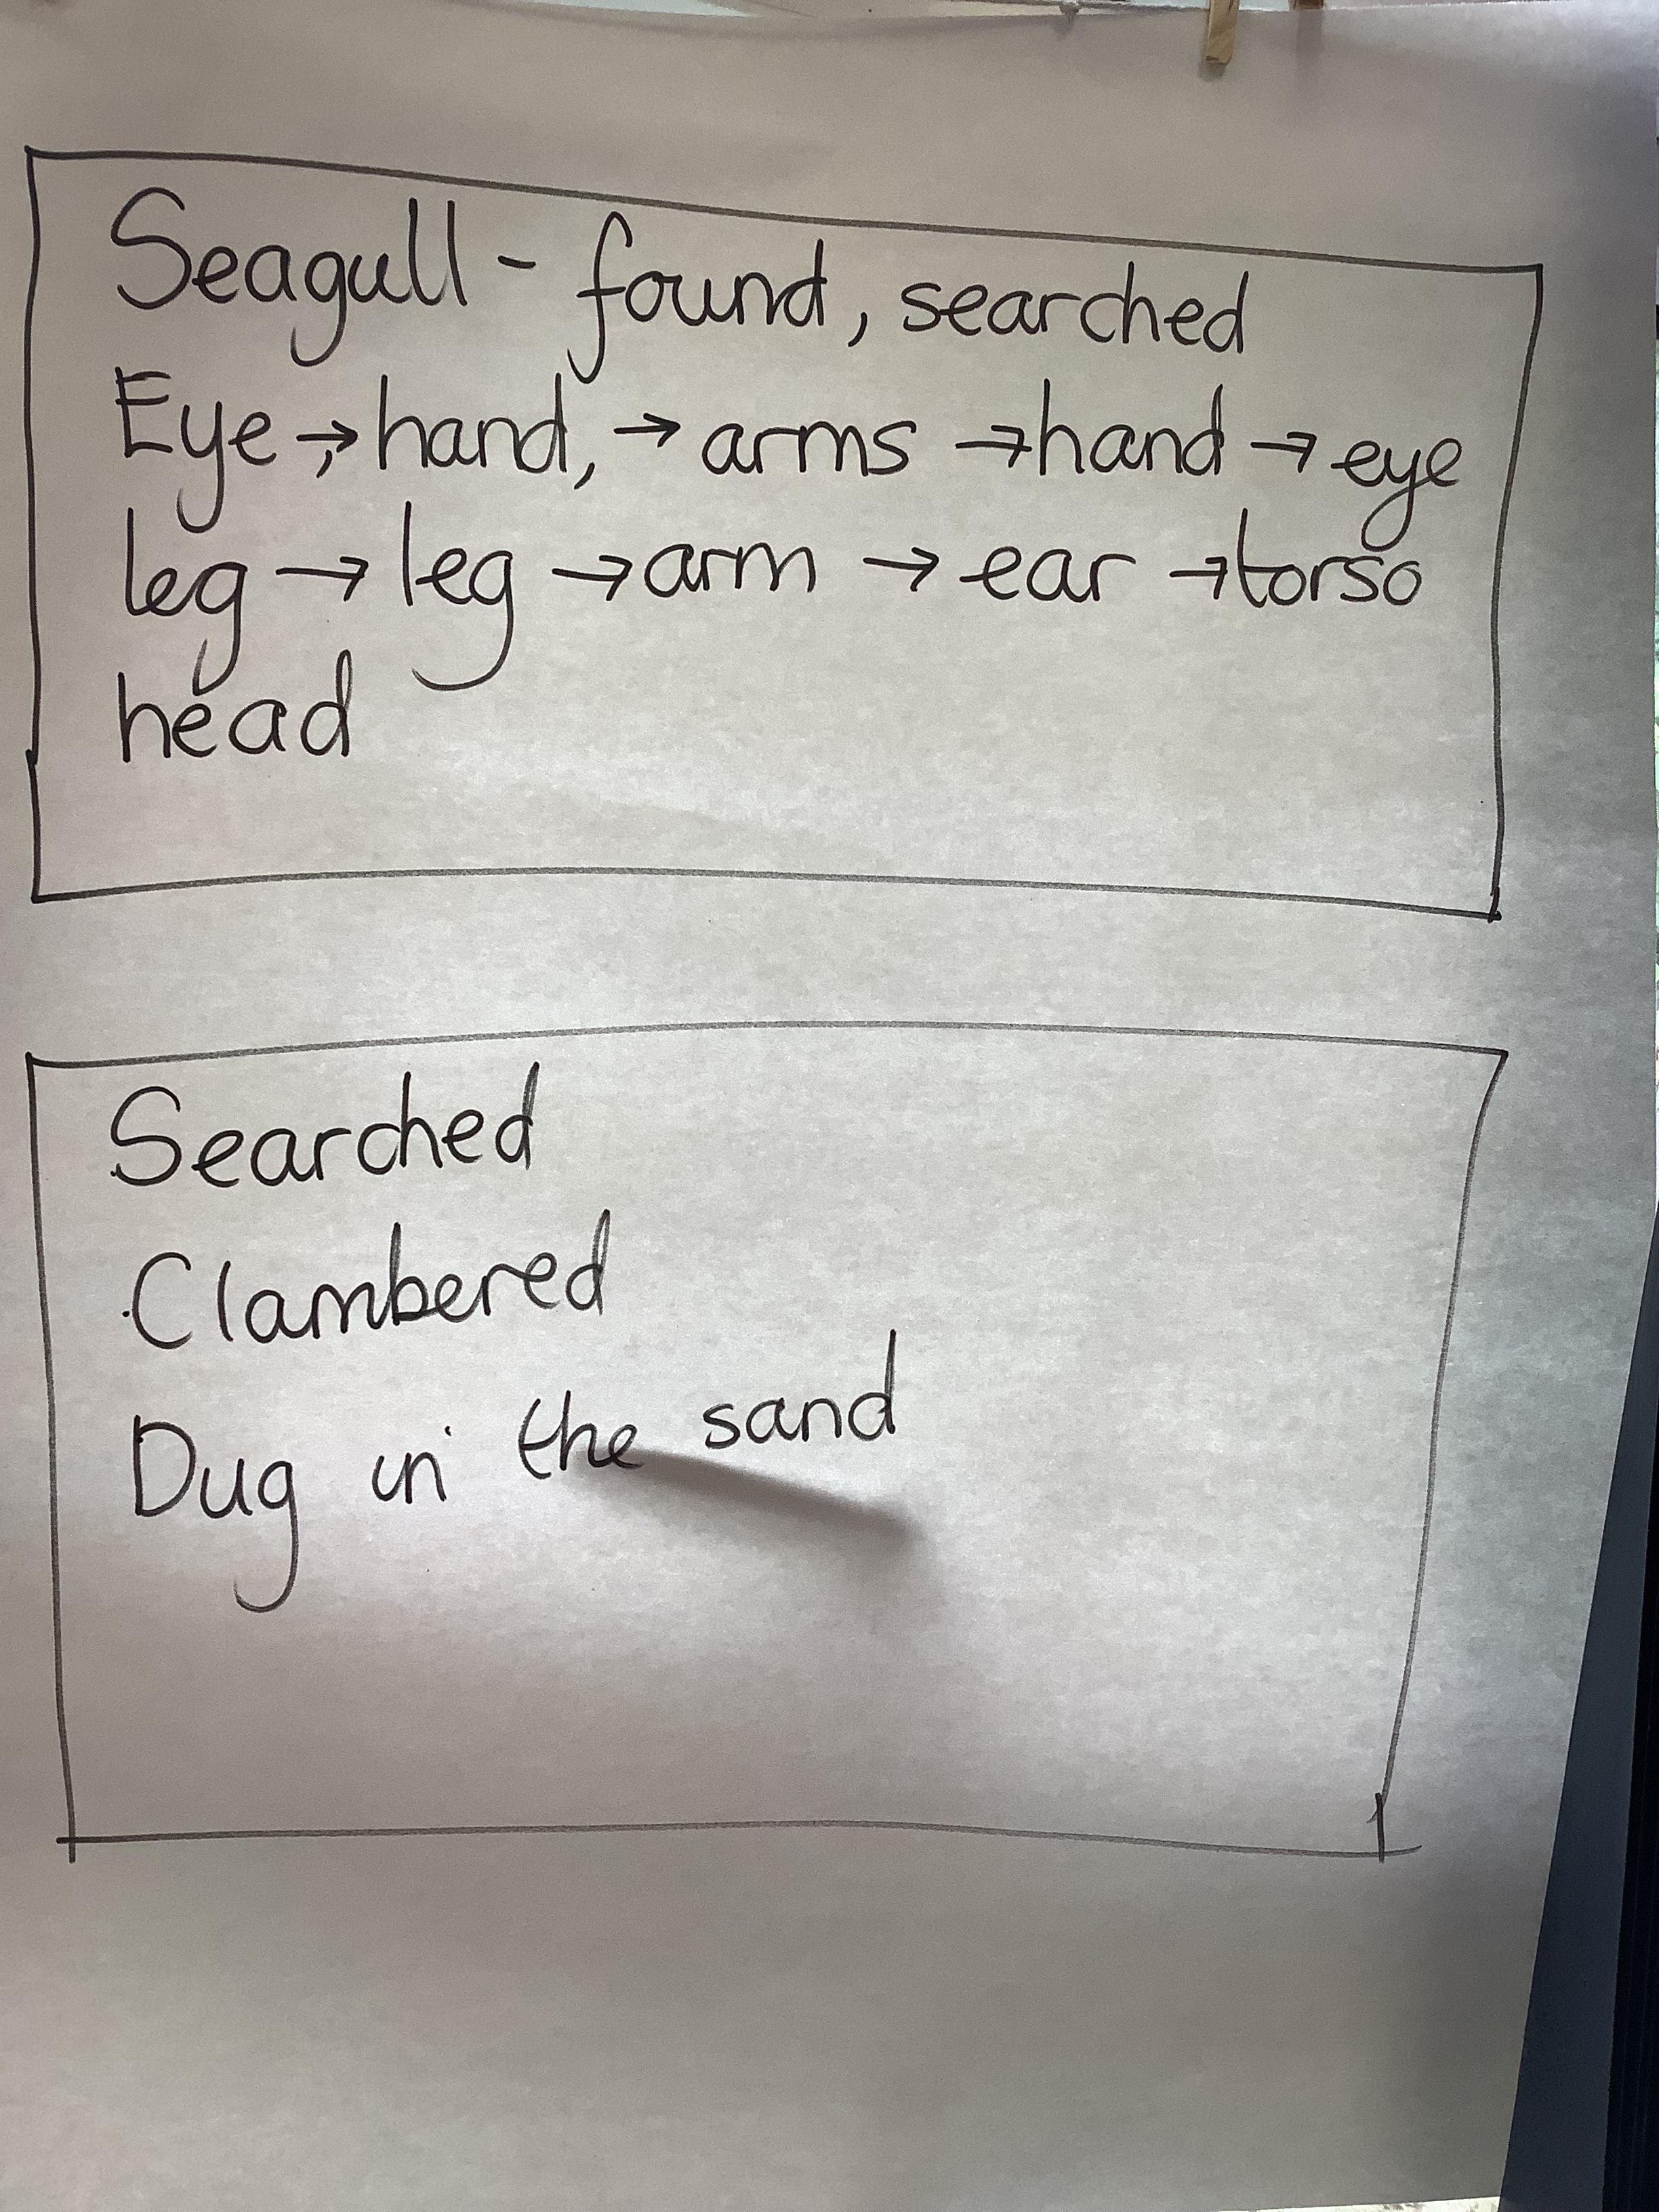 Seagull - found, searched
Eye, → hand, → arms → hand → eye
leg → leg → arm → ear → torso
head
Searched
Clambered
Dug in the sand